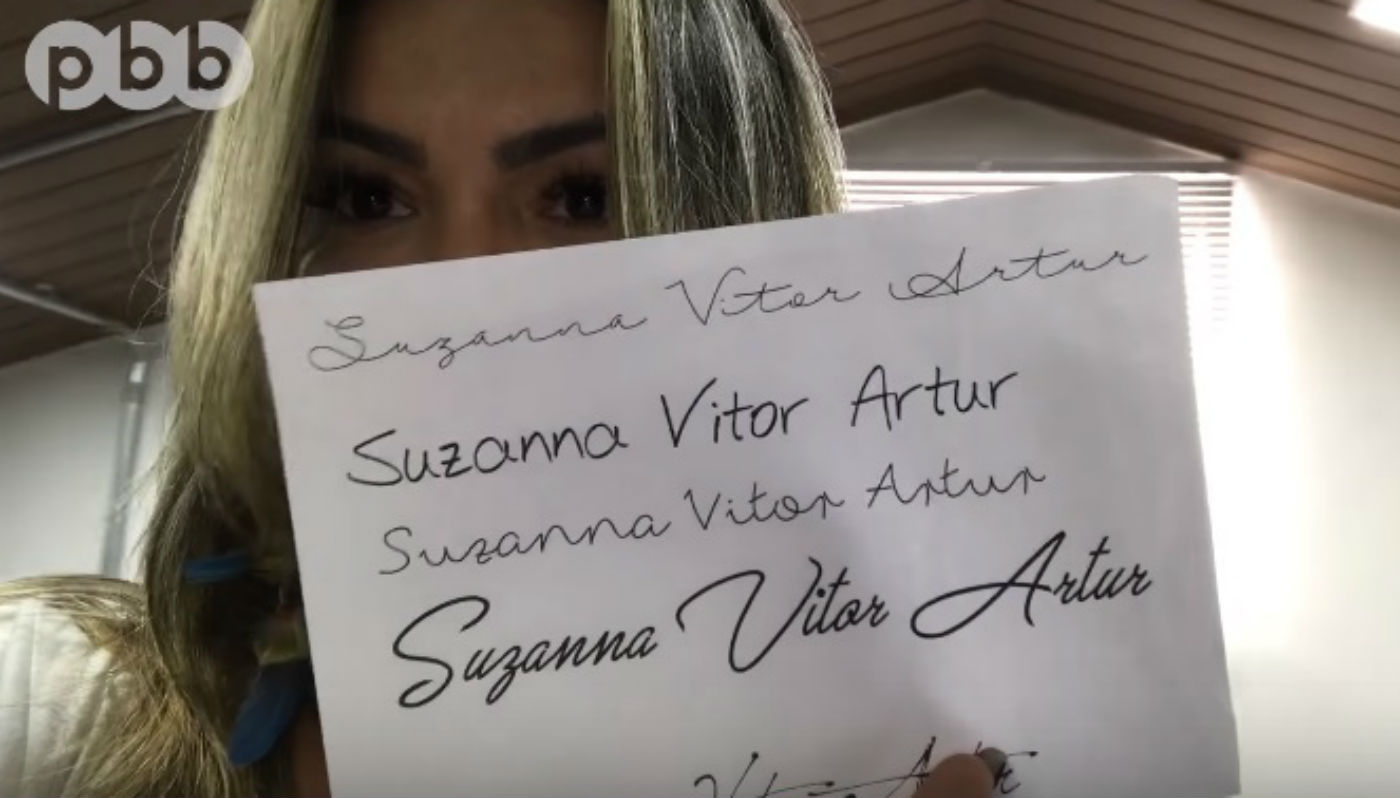 pbb
Suzanna Vitor Artur
Suzanna Vitor Artur
Suzanna Vitor Artur
Suzanna Vitor Artur